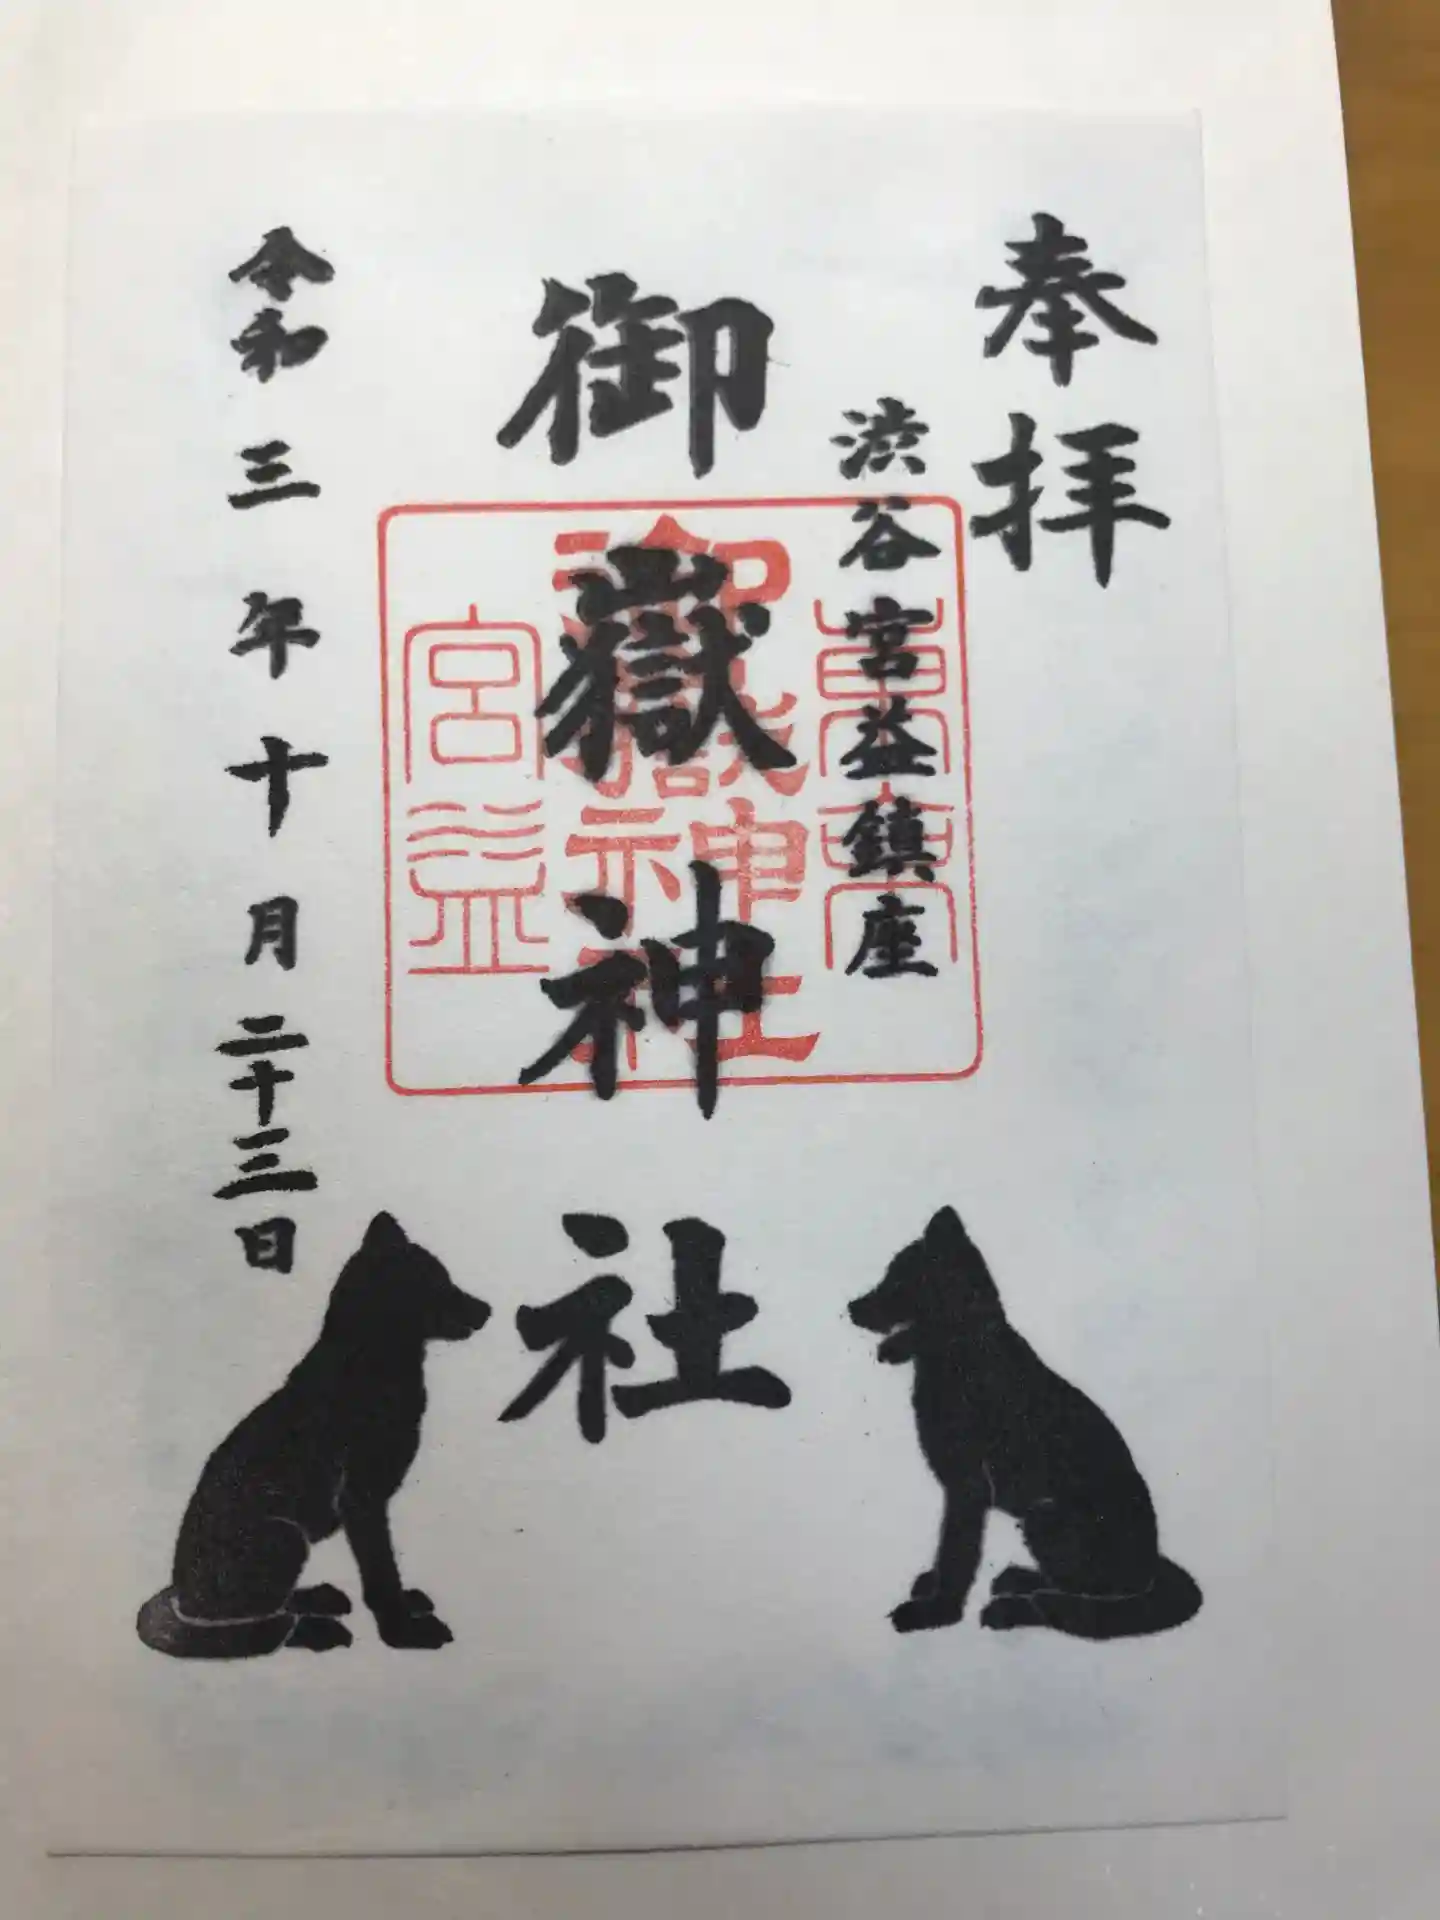 奉拝
渋谷宮益鎮座
御嶽神社
令和三年十月二十三日
東京
御嶽神社
宮益